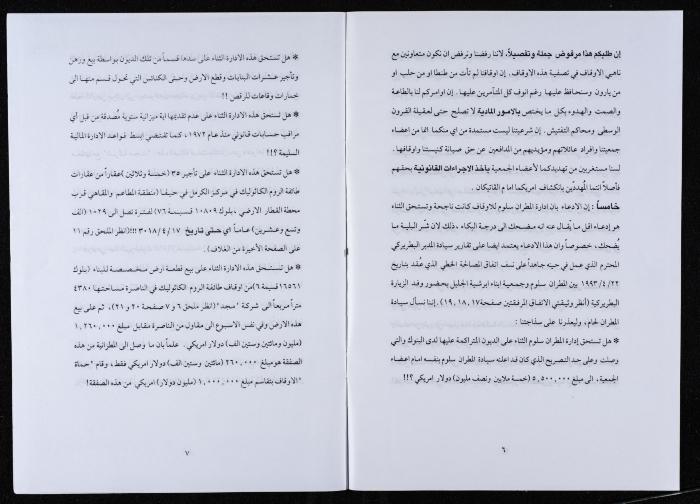 إن طلبكم هذا مرفوض جملة وتفصيلاً، لاننا رفضنا ونرفض ان نكون متعاونين مع
ناهبي الاوقاف في تصفية هذه الاوقاف. إن اوقافنا لم تأت من طنطا او من حلب او
من يارون وسنحافظ عليها، رغم انوف كل المتآمرين عليها. إن اوامركم لنا بالطاعة
والصمت والهدوء بكل ما يختص بالامور المادية لا تصلح حتى لعقيلة القرون
الوسطى ومحاكم التفتيش. إن شرعيتنا ليست مستمدة من اي منكما انما من اعضاء
جمعيتنا وافراد عائلاتهم ومؤيديهم من المدافعين عن حق صيانة كنيستنا واوقافها.
لسنا مستغربين من تهديدكما لأعضاء الجمعية بأخذ الاجراءات القانونية بحقهم
فأصلاً انتما المُهددين بانكشاف امريكما امام الڤاتيكان.
خامساً: إن الادعاء بان إدارة المطران سلوم للاوقاف كانت ناجحة وتستحق الثناء
هو إدعاء اقل ما يُقال عنه انه مضحك الى درجة البكاء، ذلك لان شر البلية ما
يُضحك، خصوصاً وان هذا الادعاء يعتمد ايضا على تقارير سيادة المدبر البطريركي
المحترم الذي عمل في حينه جاهداً على نسف اتفاق المصالحة الخطي الذي عُقد بتاريخ
١٩٩٣/٤/٢٢ بين المطران سلوم وجمعية ابناء ابرشية الجليل بحضور وفد الزيارة
البطريركية (أنظر وثيقتي الاتفاق المرفقتين صفحة ١٧، ١٨، ١٩). إننا نسأل سيادة
المطران لحام، وليعذرنا على سذاجتنا:
* هل تستحق إدارة المطران سلوم الثناء على الديون المتراكمة عليها لدى البنوك والتي
وصلت وعلى حد التصريح الذي كان قد اعلنه سيادة المطران سلوم بنفسه امام اعضاء
الجمعية، الى مبلغ ٥,٥٠٠,٠٠٠ (خمسة ملايين ونصف مليون) دولار امريكي ؟!!
٦
* هل تستحق هذه الادارة الثناء على سدها قسماً من تلك الديون بواسطة بيع ورهن
وتأجير عشرات البنايات وقطع الارض وحتى الكنائس التي تحول قسم منها الى
خمارات وقاعات للرقص !!
* هل تستحق هذه الادارة الثناء على عدم تقديمها اية ميزانية سنوية مُصدقة من قبل أي
مراقب حسابات قانوني منذ عام ١٩٧٢، كما تقتضي ابسط قواعد الادارة المالية
السليمة ؟!!
* هل تستحق هذه الادارة الثناء على تأجير ٣٥ (خمسة وثلاثين) عقاراً من عقارات
طائفة الروم الكاثوليك في مركز الكرمل في حيفا (منطقة المطاعم والمقاهي قرب
محطة القطار الارضي، بلوك ١٠٨٠٩ قسيمة ٧٦) لفترة تصل الى ١٠٢٩ (الف
وتسع وعشرين) عاماً اي حتى تاريخ ٣٠١٨/٤/١٧ !!! (انظر الملحق رقم ١١
على الصفحة الأخيرة من الغلاف).
* هل تستحق هذه الادارة الثناء على بيع قطعة ارض مخصصة للبناء (بلوك
١٦٥٦١ قسيمة ٦) من اوقاف طائفة الروم الكاثوليك في الناصرة مساحتها ٤٣٨٠
متراً مربعاً الى شركة "مجد" (انظر ملحق ٦ و ٧ صفحة ٢٠ و ٢١)، ثم على بيع
هذه الارض وفي نفس الاسبوع الى مقاول من الناصرة مقابل مبلغ ١,٢٦٠,٠٠٠
(مليون ومائتين وستين الف) دولار امريكي. علماً بان ما وصل الى المطرانية من هذه
الصفقة هو مبلغ ٢٦٠,٠٠٠ (مائتين وستين الف) دولار امريكي فقط، وقام "حماة
الاوقاف بتقاسم مبلغ ١,٠٠٠,٠٠٠ (مليون دولار) امريكي من هذه الصفقة!
٧